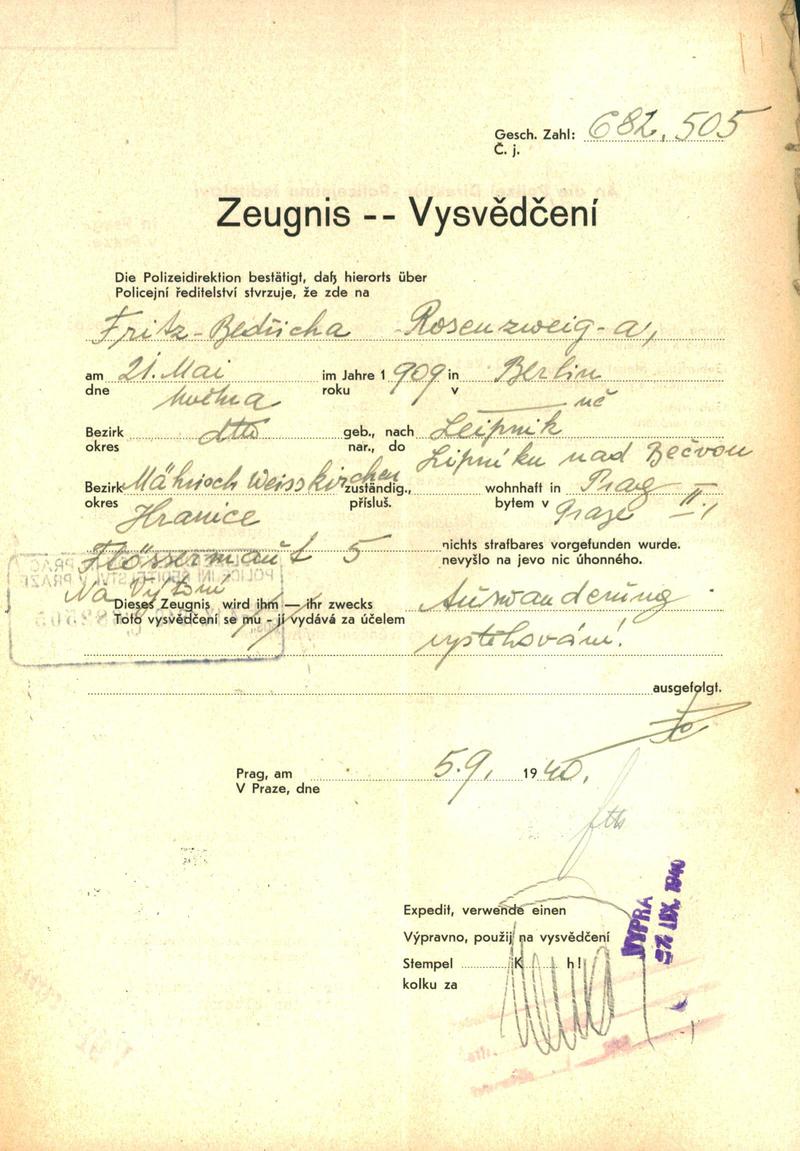 Gesch. Zahl: 682.505
Č. j.
Zeugnis -- Vysvědčení
Die Polizeidirektion bestätigt, daß hierorts über
Policejní ředitelství stvrzuje, že zde na
Fritz-Bedřicha Rosenzweig-a,
am 21. Mai im Jahre 1909 in Berlin
dne května roku v
Bezirk dtto geb., nach Leipnik
okres nar., do Lipníku nad Bečvou
Bezirk Mährisch Weisskirchen zuständig., wohnhaft in Prag II.,
okres Hranice přísluš. bytem v Praze
Flössermaut 5 nichts strafbares vorgefunden wurde.
Na Výtoni nevyšlo na jevo nic úhonného.
Dieses Zeugnis wird ihm — ihr zwecks Auswanderung
Toto vysvědčení se mu - jí vydává za účelem vystěhování.
ausgefolgt.
Prag, am 5.9. 1940.
V Praze, dne
Expedit, verwende einen
Výpravno, použij na vysvědčení
Stempel K h!
kolku za
VYPRA
IX. 1940